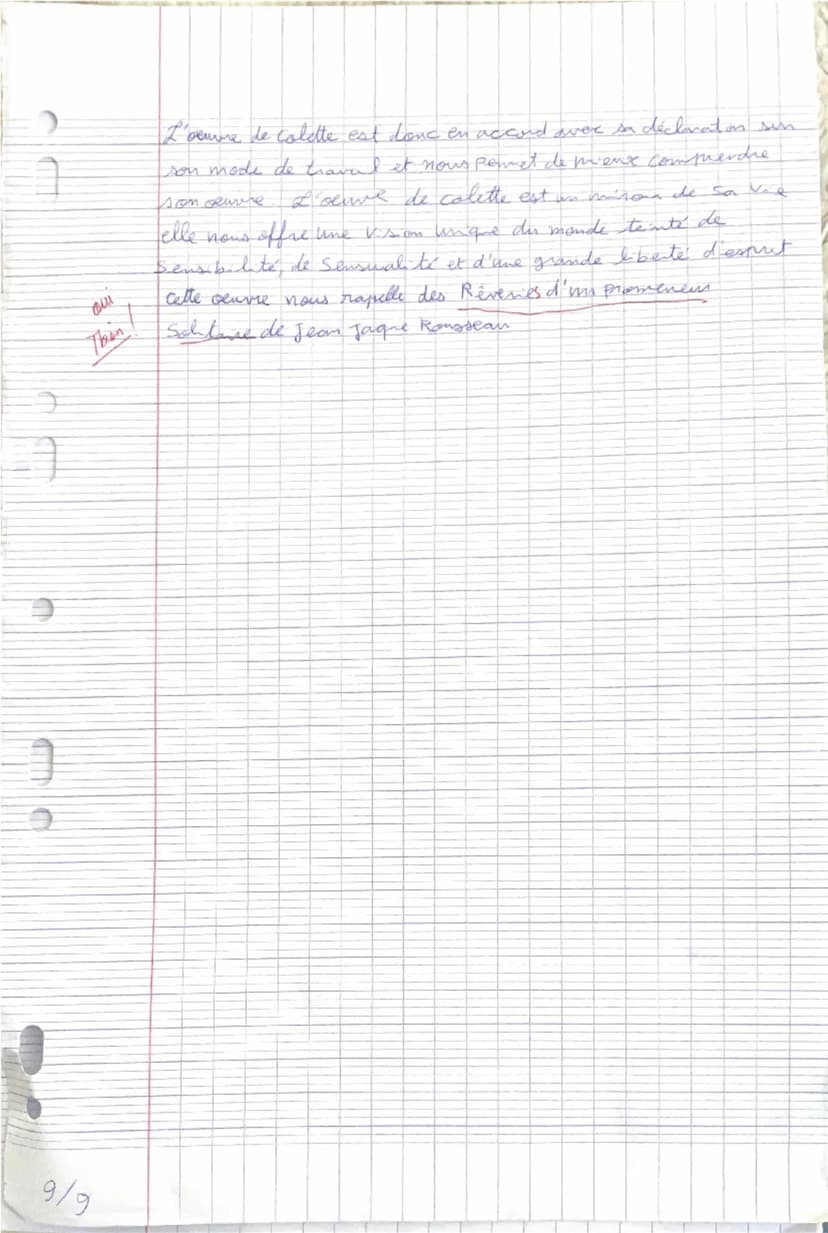 L'œuvre de Colette est donc en accord avec sa déclaration sur
son mode de travail et nous permet de mieux comprendre
son œuvre. L'œuvre de colette est un miroir de sa vie
elle nous offre une vision unique du monde teinté de
sensibilité, de sensualité et d'une grande liberté d'esprit
cette œuvre nous rapelle des Rêveries d'un promeneur
Solitaire de Jean Jaque Rousseau
oui
Tbien!
9/9